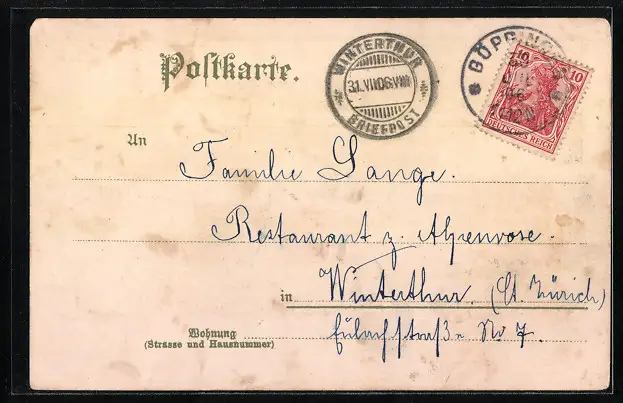 Postkarte.
WINTERTHUR
31.VII.06.VIII
BRIEFPOST
10
DEUTSCHES REICH
An
Familie Lange.
Restaurant z. Alpenrose.
in Winterthur. (Ct. Zürich)
Wohnung
(Strasse und Hausnummer)
Eulachstraße No 7.